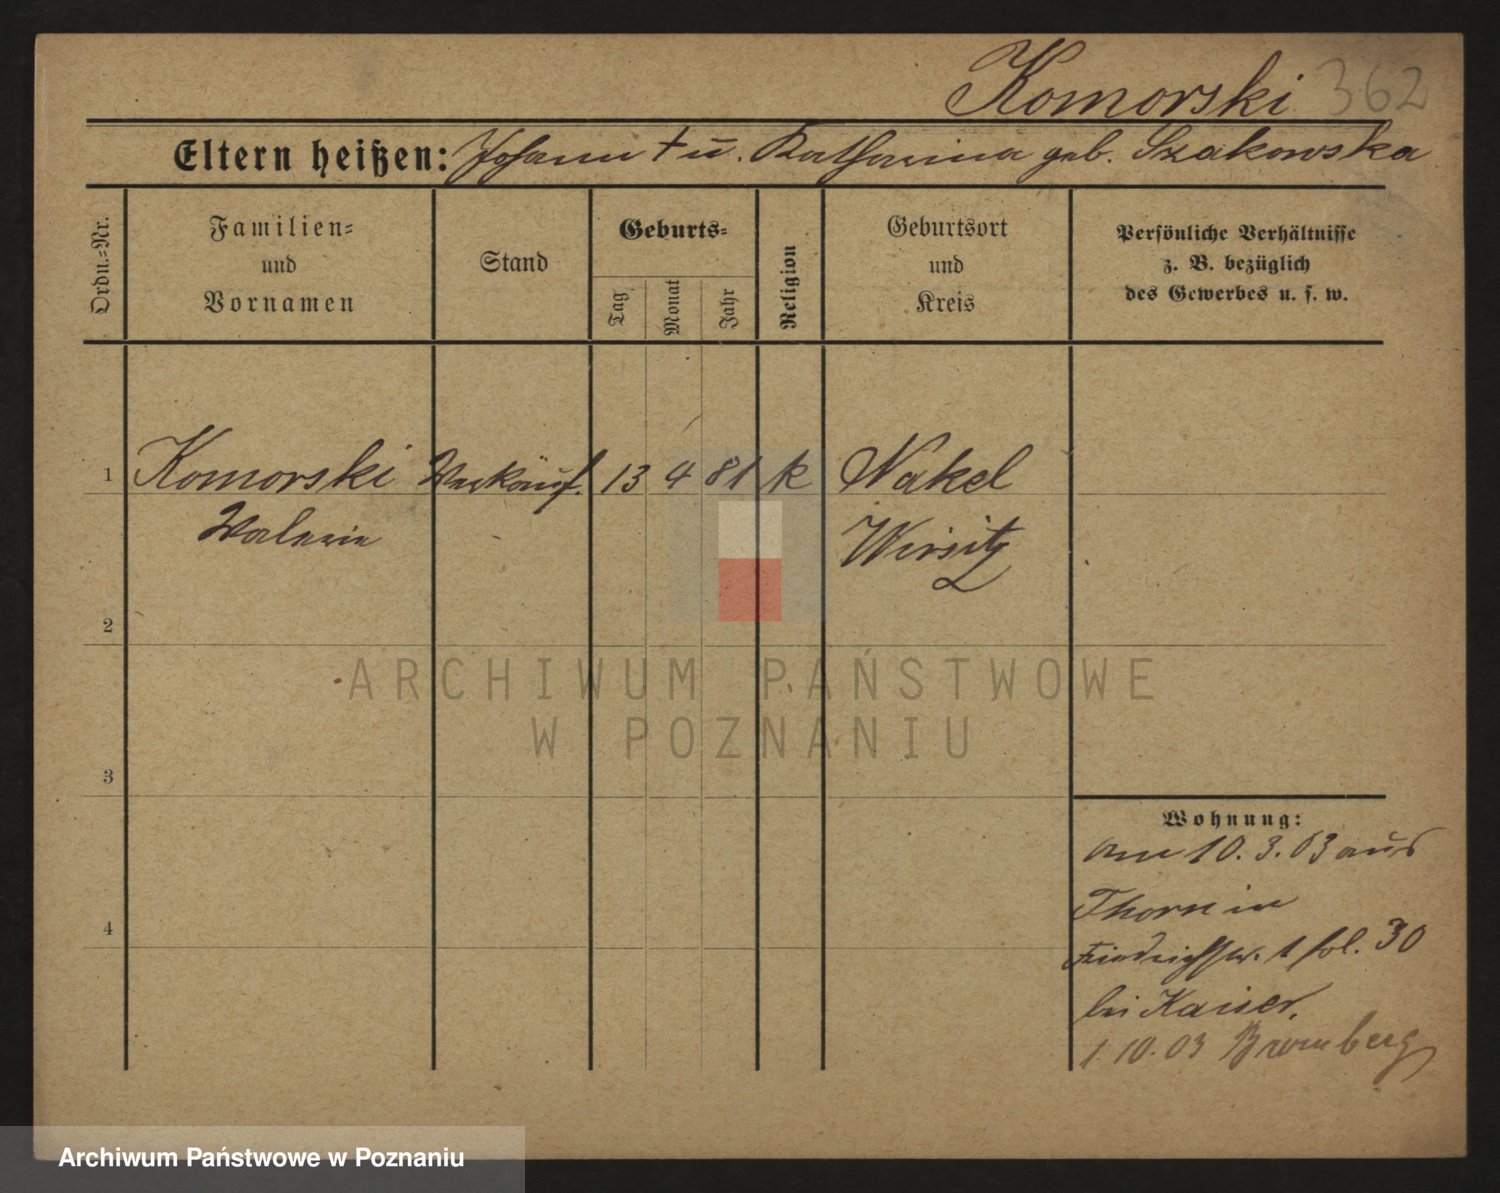 Komorski 362
Eltern heißen: Johann † u. Katharina geb. Szakowska
Ordn.-Nr.
Familien-
und
Vornamen
Stand
Geburts-
Tag
Monat
Jahr
Religion
Geburtsort
und
Kreis
Persönliche Verhältnisse
z. B. bezüglich
des Gewerbes u. s. w.
1 Komorski Verkäuf. 13 4 81 k Nakel
Valerie Wirsitz
2
3
4
Wohnung:
am 10. 3. 03 aus
Thorn in
Friedrichstr. 1 fol. 30
bei Kaiser.
1. 10. 03 Bromberg
ARCHIWUM PAŃSTWOWE
W POZNANIU
Archiwum Państwowe w Poznaniu